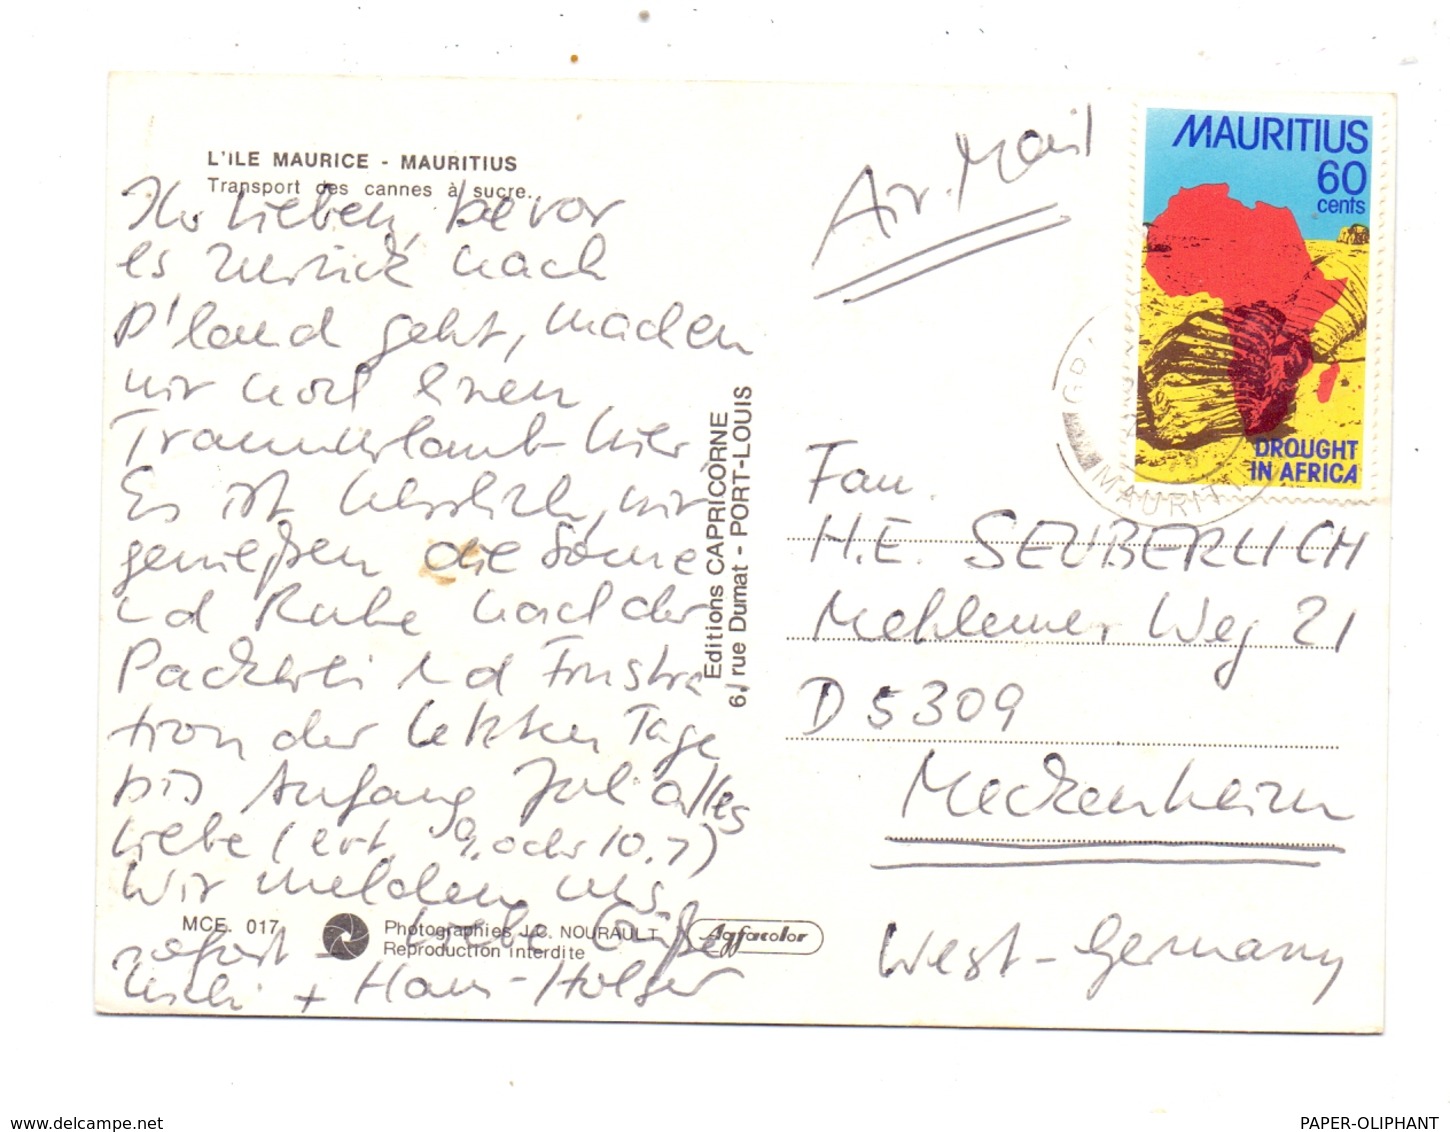 L'ILE MAURICE - MAURITIUS
Transport des cannes à sucre.
Ihr Lieben, bevor
es zurück nach
D'land geht, machen
wir noch einen
Traumurlaub hier
Es ist herrlich, wir
genießen die Sonne
und Ruhe nach der
Packerei und Frustra-
tion der letzten Tage
bis Anfang Juli alles
Liebe (evt. 9. oder 10.7)
Wir melden uns
sofort - Liebe Grüße
+ Hans-Holger
MCE. 017
Photographies J.C. NOURAULT
Reproduction interdite
Agfacolor
Editions CAPRICORNE
6, rue Dumat - PORT-LOUIS
Air Mail
MAURITIUS
60
cents
DROUGHT
IN AFRICA
MAURITI
Fam.
H.E. SEUBERLICH
Mehlemer Weg 21
D 5309
Meckenheim
West-Germany
www.delcampe.net
PAPER-OLIPHANT